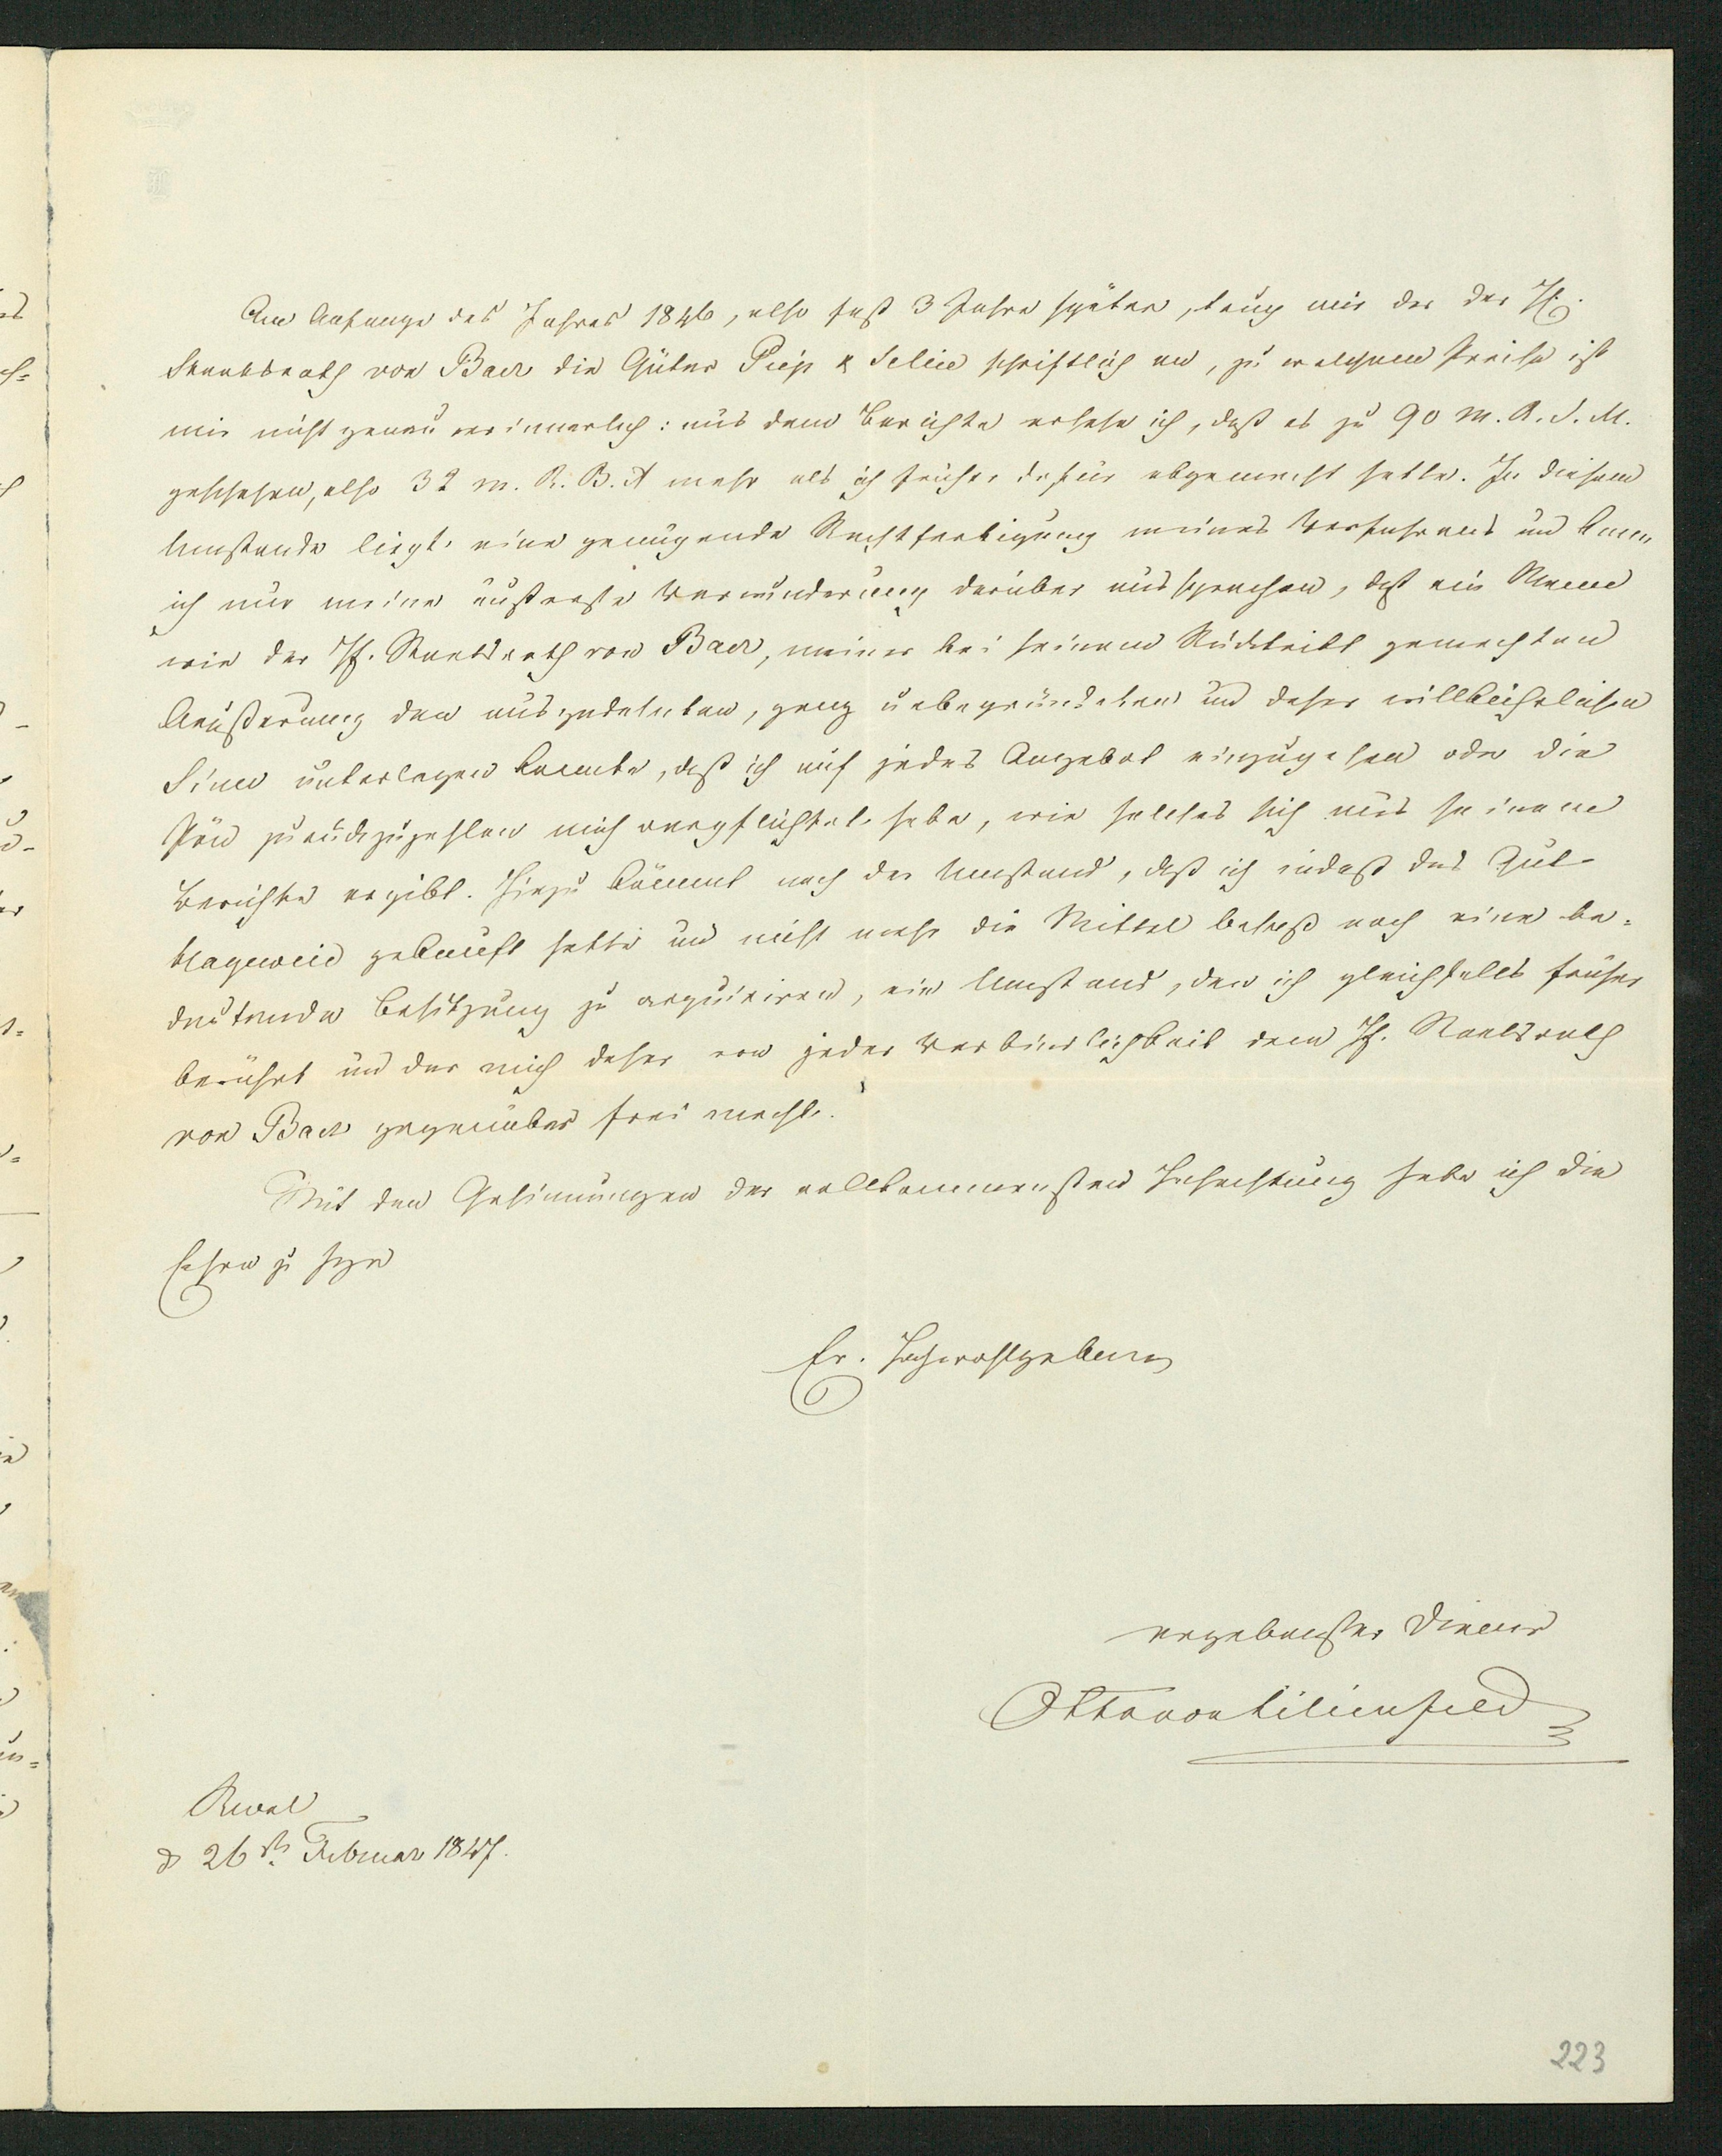 Am Anfange des Jahres 1846, also fast 3 Jahre später, trug mir der der H.
Staatsrath von Baer die Güter Piep & Sellie schriftlich an, zu welchem Preise ist
mir nicht genau erinnerlich: aus dem Berichte ersehe ich, daß es zu 90 m. R. S. M.
geschehen, also 32 m. R. B. A mehr als ich früher dafür abgemacht hatte. In diesem
Umstande liegt eine genügende Rechtfertigung meines Verfahrens und kann
ich nur meine äußerste Verwunderung darüber aussprechen, daß ein Mann
wie der H. Staatsrath von Baer, meiner bei seinem Rücktritt gemachten
Äußerung den ausgedehnten, ganz unbegründeten und daher willkührlichen
Sinn unterlegen konnte, daß ich auf jedes Angebot einzugehen oder die
Pön zurückzuzahlen mich verpflichtet habe, wie solches sich aus seinem
Berichte ergibt. Hinzu kömmt noch der Umstand, daß ich indeß das Gut
gekauft hatte und nicht mehr die Mittel besaß noch eine be-
deutende Besitzung zu acquiriren, ein Umstand, den ich gleichfalls früher
berührt und der mich daher von jeder Verbindlichkeit dem H. Staatsrath
von Baer gegenüber frei macht.
Mit den Gesinnungen der vollkommensten Hochachtung habe ich die
Ehre zu seyn
Ew. Hochwohlgeboren
ergebenster Diener
Otto von Lilienfeld
Reval
d 26st. Februar 1847.
223